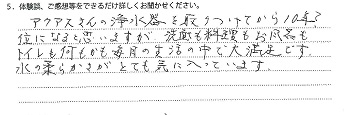 5. 体験談、ご感想等をできるだけ詳しくお聞かせください。
アクアスさんの浄水器を取りつけてから10年
位になると思いますが、洗面も料理もお風呂も
トイレも何もかも毎月の生活の中で大満足です。
水の柔らかさがとても気に入っています。